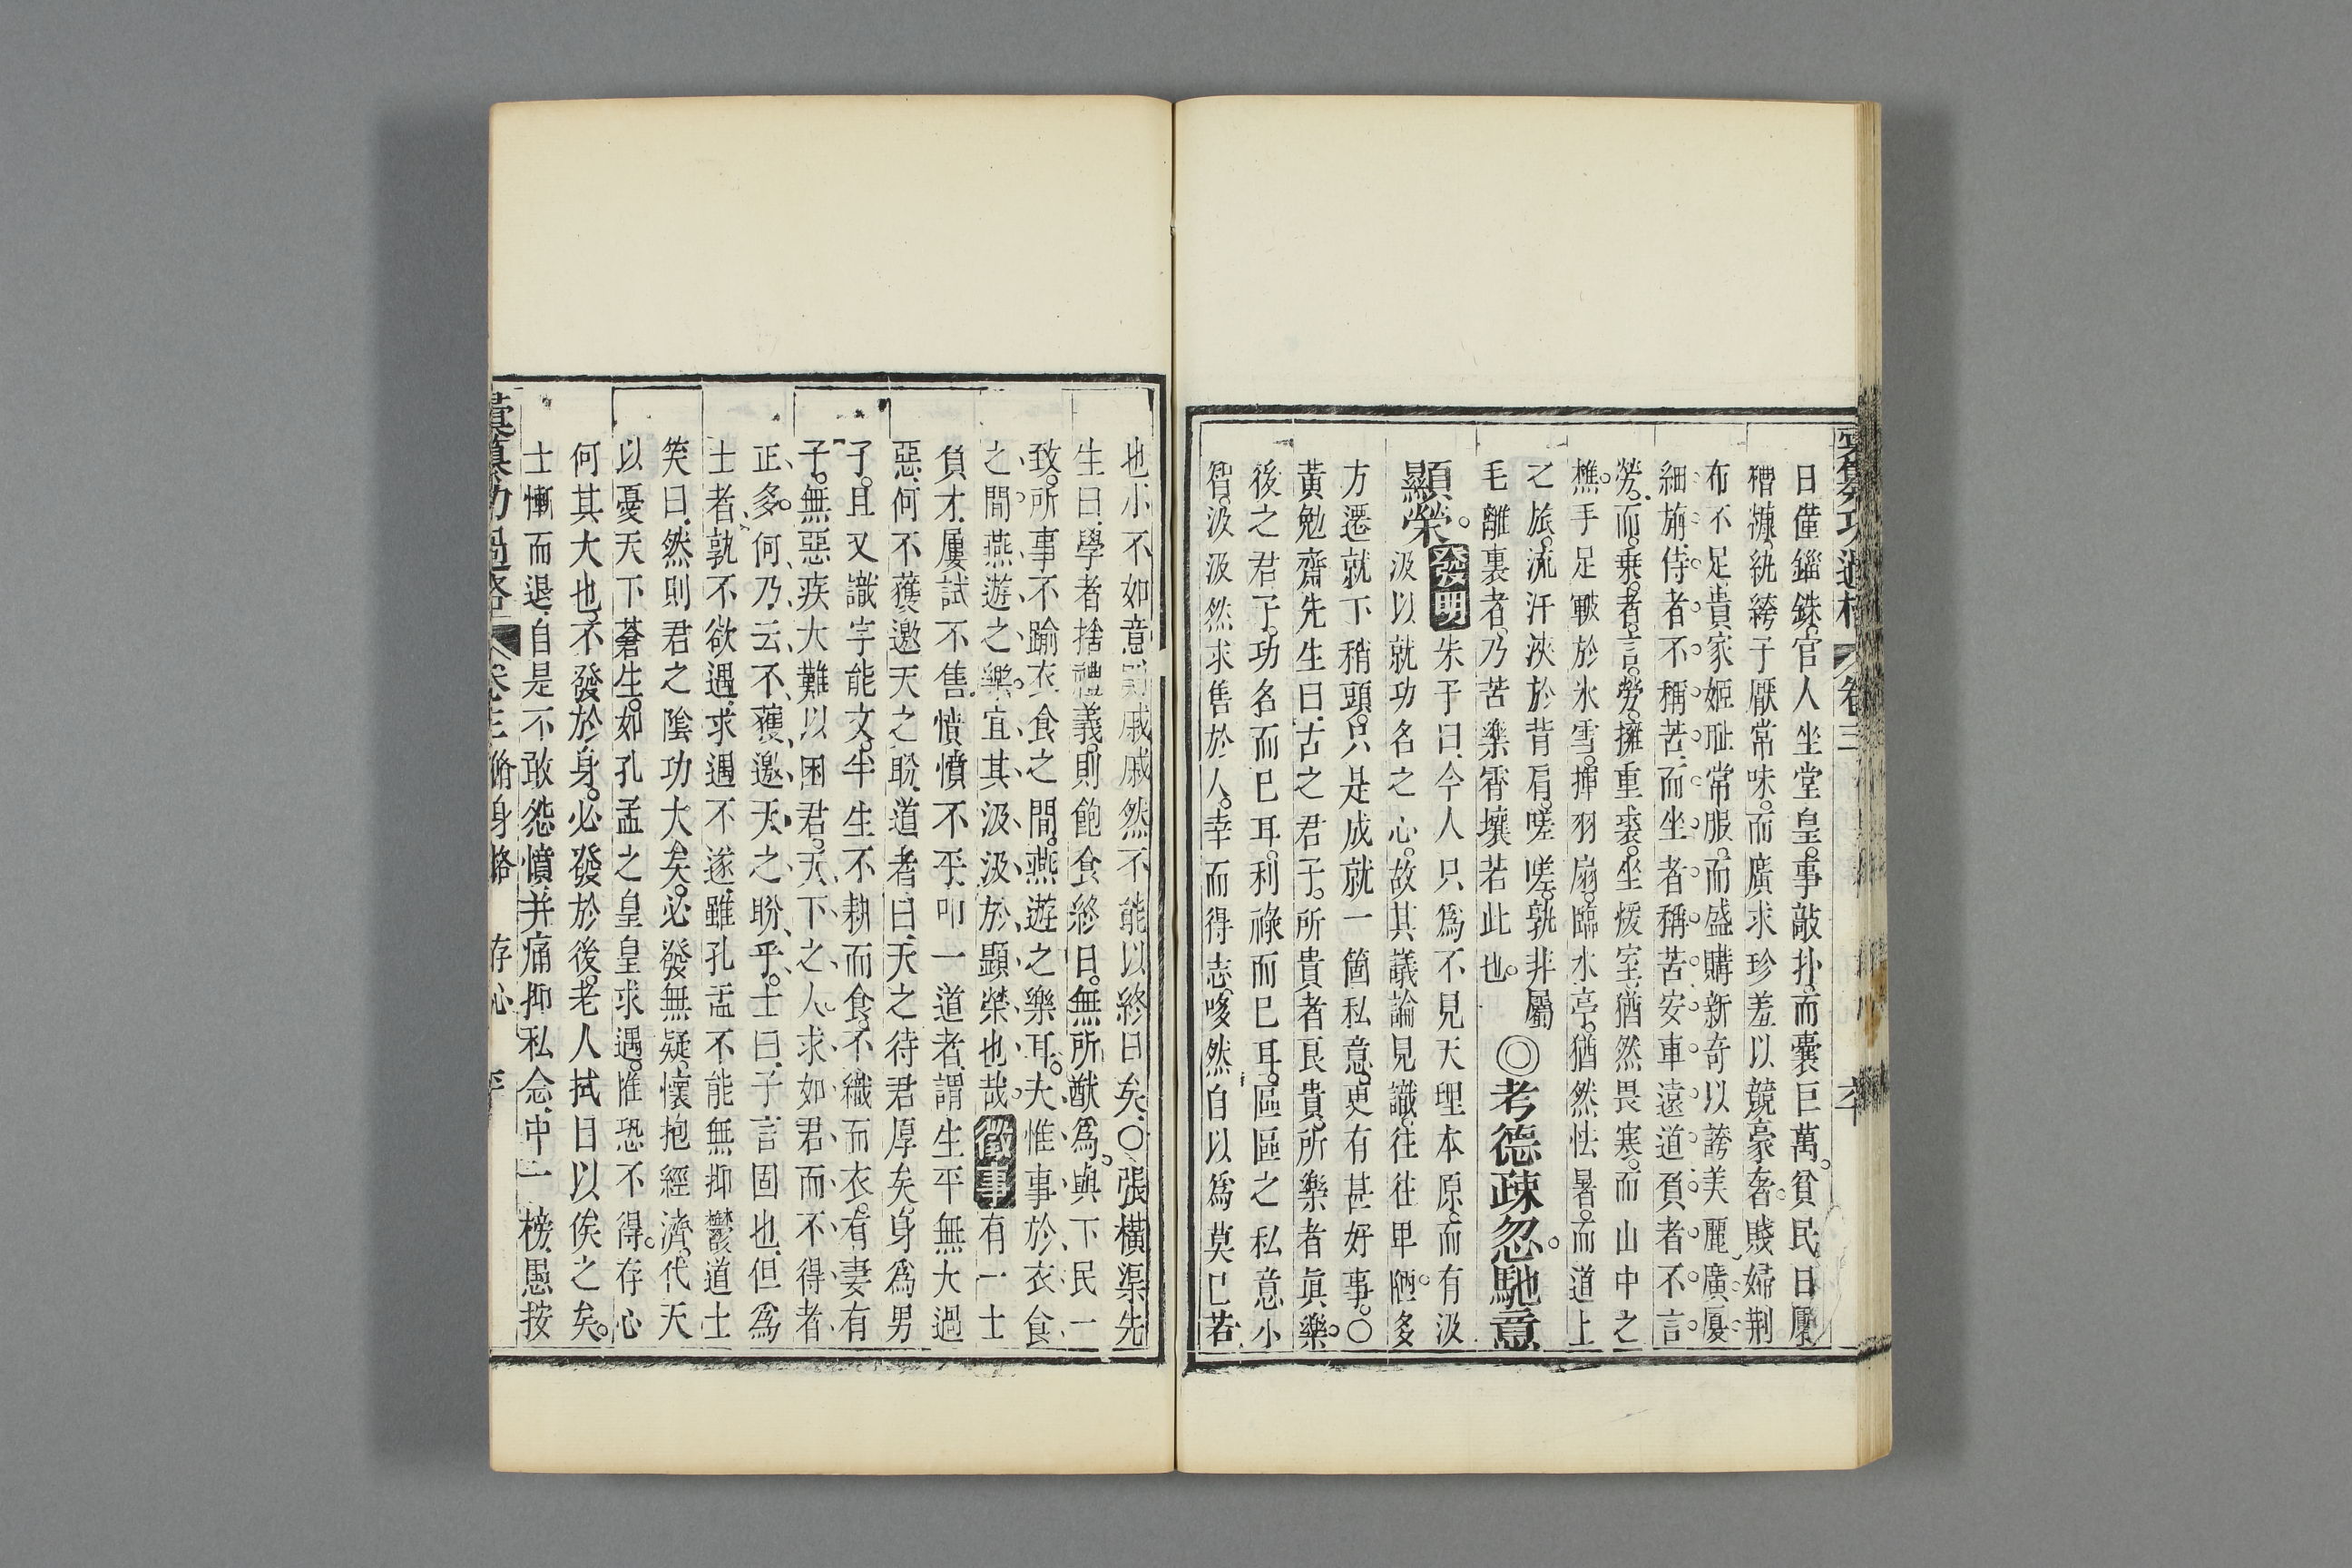 日僅錙銖。官人坐堂皇。事敲扑。而囊巨萬。貧民日饜
糟糠。紈絝子厭常味。而廣求珍羞以競豪奢。賤婦荆
布不足。貴家姬耻常服。而盛購新奇以誇美麗。廣廈
細旃。侍者不稱苦。而坐者稱苦。安車遠道。負者不言
勞。而乗者言勞。擁重裘。坐煖室。猶然畏寒。而山中之
樵。手足皸於氷雪。揮羽扇。臨水亭。猶然怯暑。而道上
之旅。流汗浹於背肩。嗟嗟。孰非屬
毛離裏者。乃苦樂霄壤若此也。
◎考德疎忽馳意
顯榮。
發明
朱子曰。今人只爲不見天理本原。而有汲
汲以就功名之心。故其議論見識。往往甲陋。多
方遷就下稍頭。只是成就一箇私意。更有甚好事。〇
黃勉齋先生曰。古之君子。所貴者良貴。所樂者眞樂。
後之君子。功名而已耳。利祿而已耳。區區之私意小
智。汲汲然求售於人。幸而得志。嗷然自以爲莫已若
也。小不如意。則戚戚然不能以終日矣。〇張橫渠先
生曰。學者捨禮義。則飽食終日。無所猷爲。與下民一
致。所事不踰衣食之間。燕遊之樂耳。夫惟事於衣食
之間。燕遊之樂。宜其汲汲於顯榮也哉。
徵事
有一士
負才。屢試不售。憤憤不平。叩一道者。謂生平無大過
惡。何不獲邀天之盼。道者曰。天之待君厚矣。身爲男
子。且又識字能文。半生不耕而食。不織而衣。有妻有
子。無惡疾大難以困君。天下之人。求如君而不得者
正多。何乃云不獲邀天之盼乎。士曰。子言固也。但爲
士者孰不欲遇。求遇不遂。雖孔孟不能無抑鬱。道士
笑曰。然則君之陰功大矣。必發無疑。懷抱經濟。代天
以憂天下蒼生。如孔孟之皇皇求遇。惟恐不得。存心
何其大也。不發於身。必發於後。老人拭目以俟之矣。
士慚而退。自是不敢怨憤。并痛抑私念。中一榜。愚按
彙纂功過格 卷三 脩身格 存心